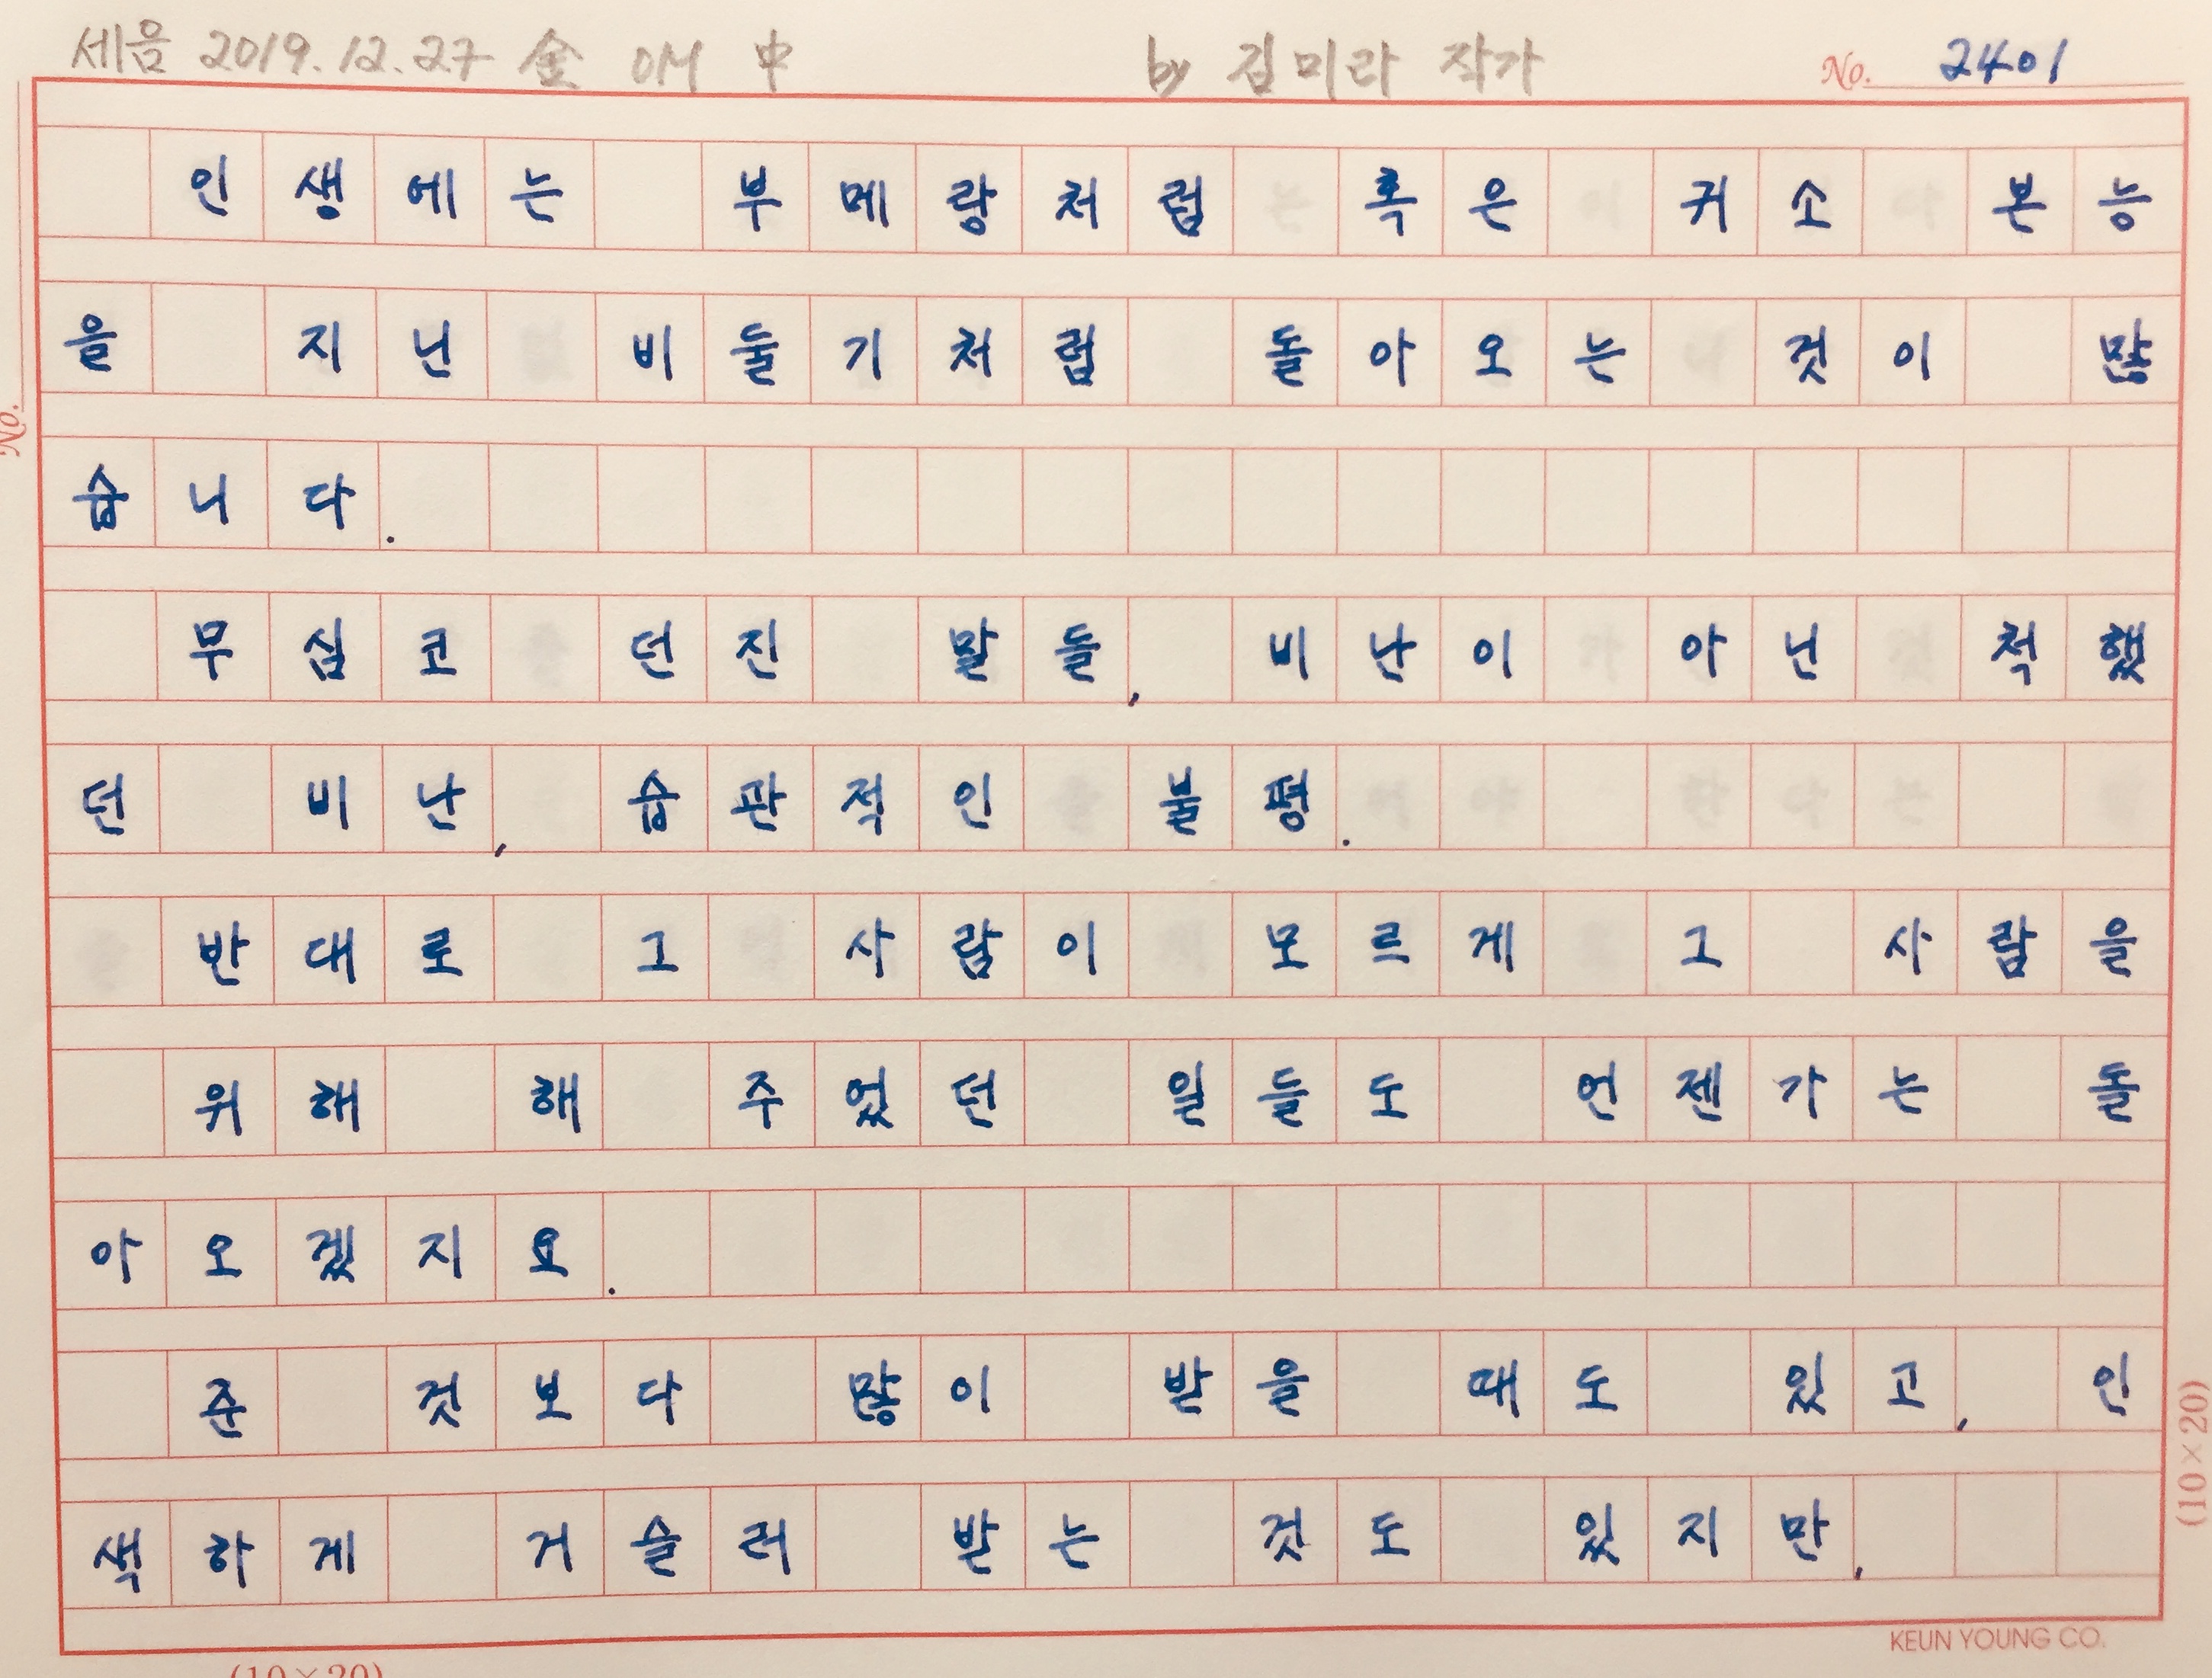 세음 2019.12.27 金 이벼 中 by 김미라 작가 No. 2401
인생에는 부메랑처럼 혹은 귀소 본능
을 지닌 비둘기처럼 돌아오는 것이 많
습니다.
무심코 던진 말들, 비난이 아닌 척했
던 비난, 습관적인 불평.
반대로 그 사람이 모르게 그 사람을
위해 해 주었던 일들도 언젠가는 돌
아오겠지요.
준 것보다 많이 받을 때도 있고, 인
색하게 거슬러 받는 것도 있지만,
No.
(10×20)
KEUN YOUNG CO.
(10×20)